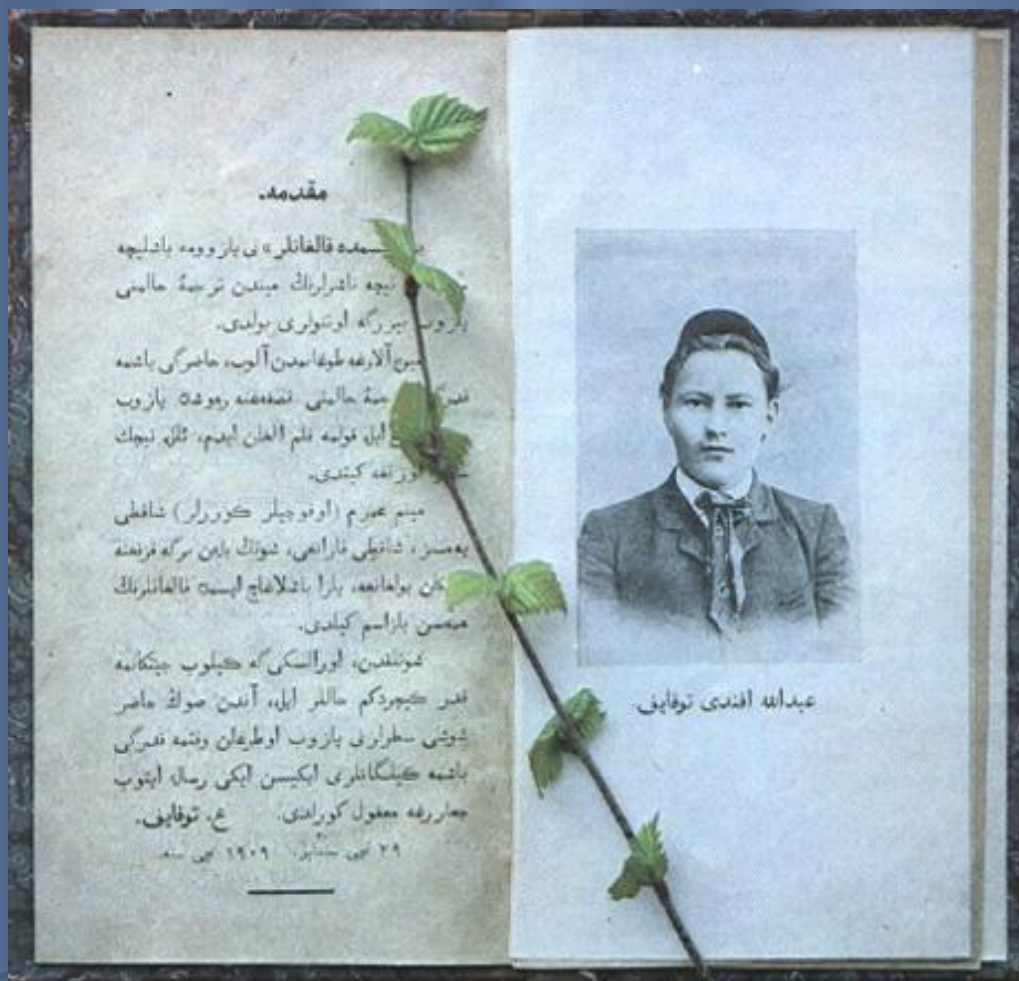 مقدمه.
قالغانلر» نی یازوومه باشلیچه
نیچه ناشرلرنڭ میندن ترجمهٔ حالینی
بیزرگه اوتنولری بولدی.
آلارغه طوغانمدن آلوب، حاضرگی باشمه
حالینی یازوب
قولمه قلم آلغان ایدم، ئللا نیچك
کیتدی.
مینم عمرم (اوقوچیلر کوررلر) شاقطی
یهمسز، شاقطی قارانغی، شونڭ بلهن برگه
بولغانغه، یازا باشلاغاچ ایسمده قالغانلرنڭ
همهسن یازاسم کیلدی.
شوننقدن، اورالسکی گه کیلوب جیتکانمه
قدر کیچردکم حاللر ایله، آندن صوڭ حاضر
شوشی سطرلرنی یازوب اوطرغان وقتمه قدرگی
باشمه کیلگانلرنی ایکیسن ایکی رساله ایتوب
چغاررغه معقول کورلدی. ع. توقایف.
۲۹ نچی سنتابر، ۱۹۰۹ نچی سنه.
عبدالله افندی توقایف